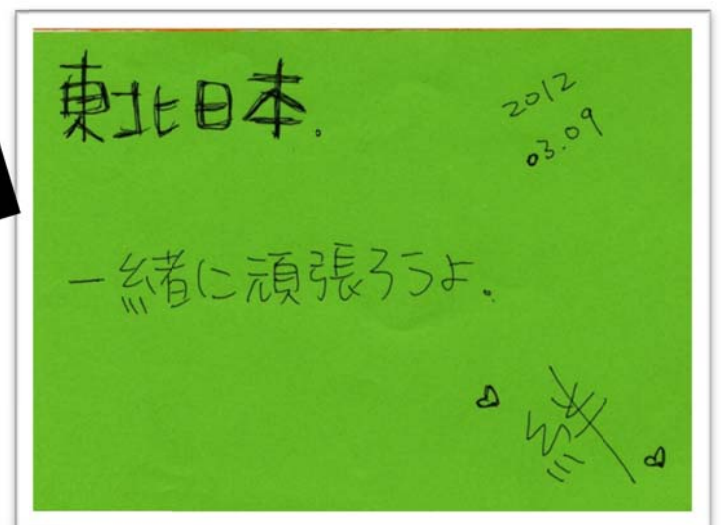 東北日本.
2012
03.09
一緒に頑張ろうよ。
絆